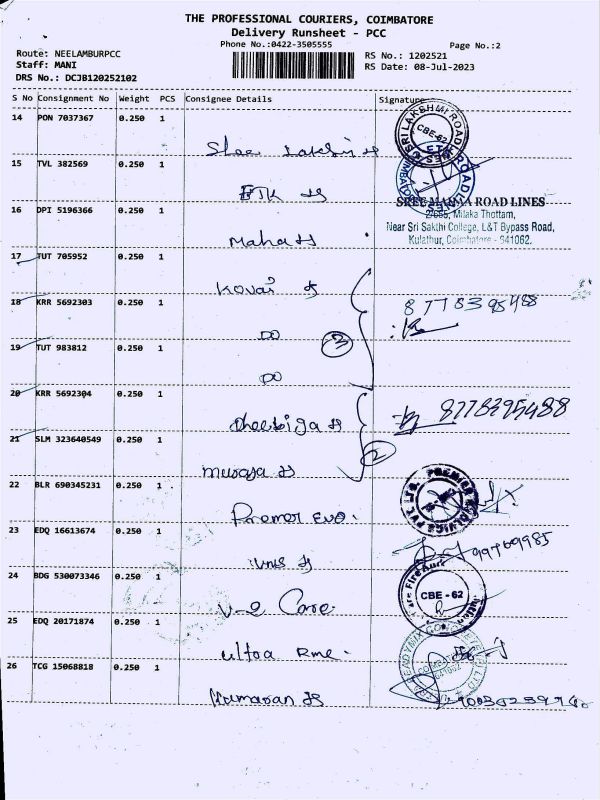 THE PROFESSIONAL COURIERS, COIMBATORE
Delivery Runsheet - PCC
Phone No.:0422-3505555
Page No.:2
Route: NEELAMBURPCC
Staff: MANI
DRS No.: DCJB120252102
RS No.: 1202521
RS Date: 08-Jul-2023
S No Consignment No Weight PCS Consignee Details Signature
14 PON 7037367 0.250 1
15 TVL 382569 0.250 1
16 DPI 5196366 0.250 1
Maha
SREE MAHAA ROAD LINES
2/665, Milaka Thottam,
Near Sri Sakthi College, L&T Bypass Road,
Kulathur, Coimbatore - 641062.
17 TUT 705952 0.250 1
Kovai
18 KRR 5692303 0.250 1
8778395488
DO
3
19 TUT 983812 0.250 1
DO
20 KRR 5692304 0.250 1
8778395488
21 SLM 323640549 0.250 1
2
22 BLR 690345231 0.250 1
Premer Evo.
23 EDQ 16613674 0.250 1
24 BDG 530073346 0.250 1
V-2 Care.
CBE - 62
25 EDQ 20171874 0.250 1
Ultra Rme.
26 TCG 15068818 0.250 1
Kumaran